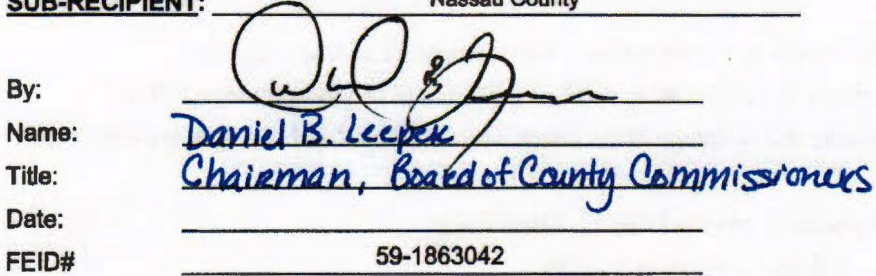 SUB-RECIPIENT: Nassau County
By:
Name: Daniel B. Leeper
Title: Chairman, Board of County Commissioners
Date:
FEID# 59-1863042